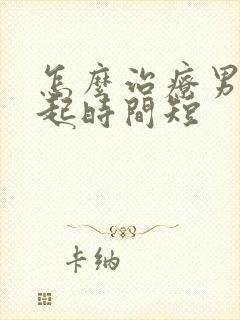 怎麼治療男
起時間短
卡納